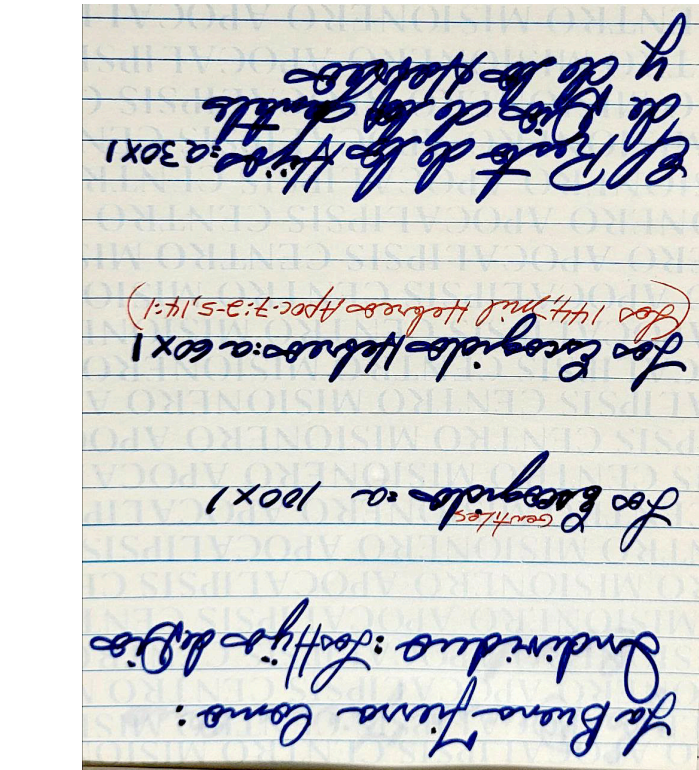 La Buena Tierra Como:
Individuo: Los Hijos de Dios
Gentiles
Los Escogidos = a 100X1
Los Escogidos Hebreos: a 60X1
(Los 144,mil Hebreos Apoc. 7:2-5, 14:1)
El Resto de los Hijos = a 30X1
de Dios de los gentiles
y de los Hebreos